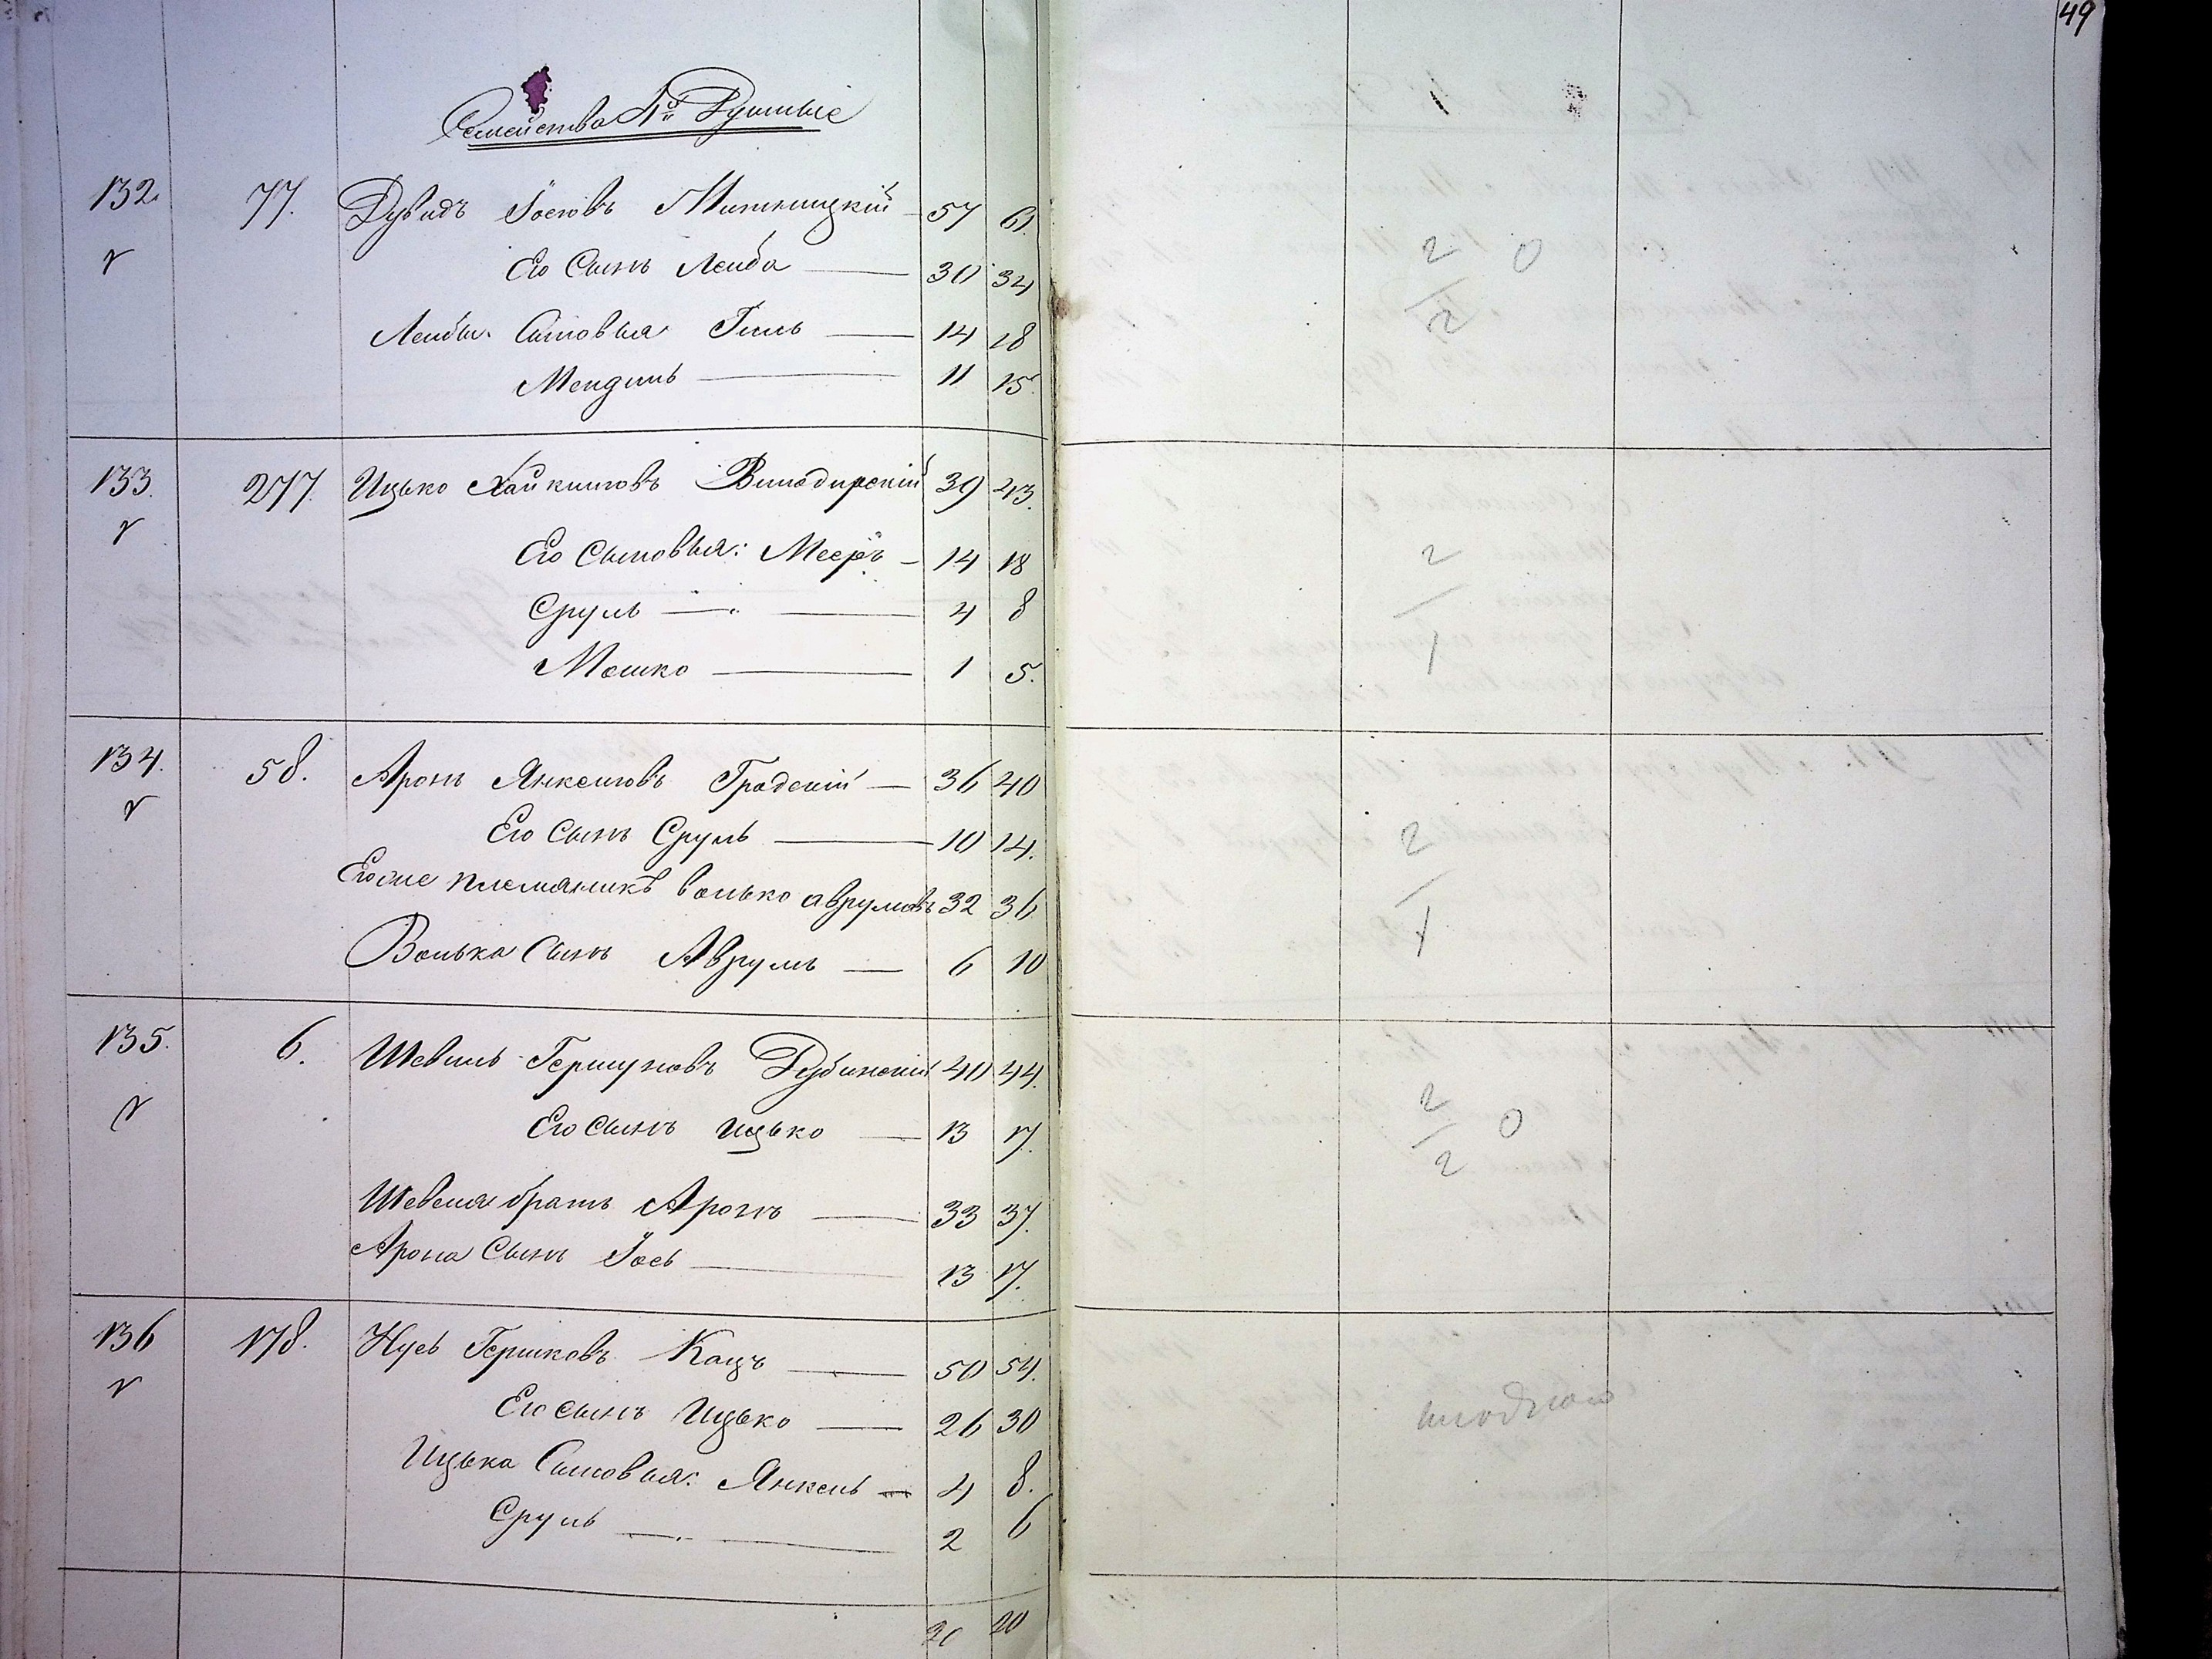 49
Семейства 4й Душные
132. 77. Дувидъ Іосіовъ Митницкій 57 61.
Его Сынъ Лейба 30 34
Лейбы Сыновья Гиль 14 18
Мендиль 11 15.
133. 277. Ицько Хайкиловъ Винодирскій 39 43.
Его Сыновья: Мееръ 14 18
Сруль 4 8
Мошко 1 5.
134. 58. Аронъ Янкелювъ Градскій 36 40
Его Сынъ Сруль 10 14.
Его же племянникъ Волько Аврумовъ 32 36
Волька Сынъ Аврумъ 6 10
135. 6. Шевель Гершуновъ Дубинскій 40 44.
Его Сынъ Ицько 13 17.
Шевеля братъ Аронъ 33 37.
Арона Сынъ Іось 13 17.
136 178. Нусь Гершковъ Кацъ 50 54.
Его сынъ Ицько 26 30
Ицька Сыновья: Янкель 4 8.
Сруль 2 6
20 20
2 0
2
2
1
2
1
2 0
2